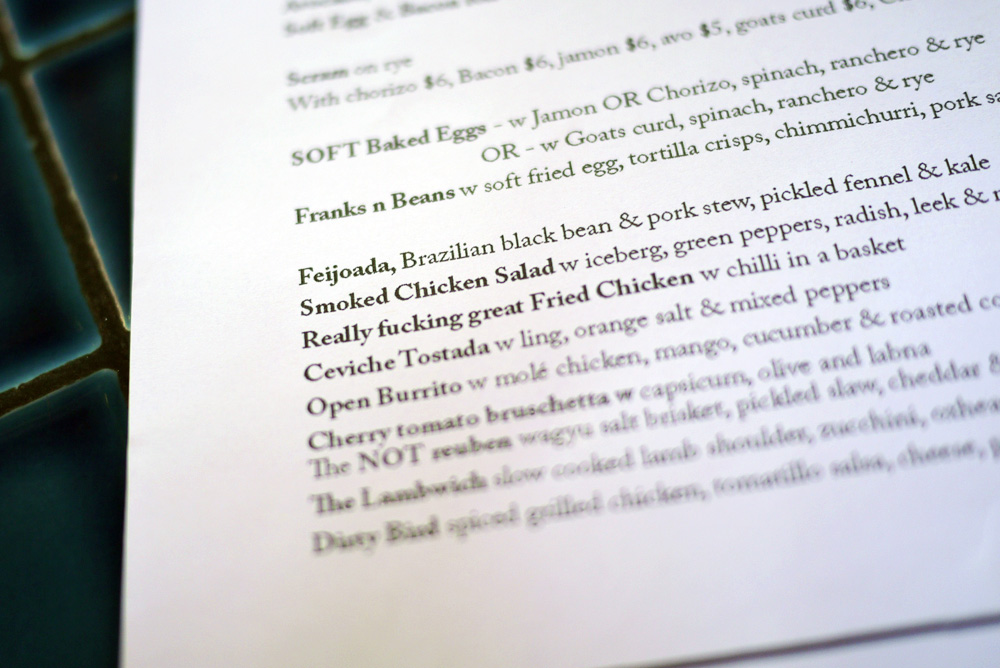 Soft Egg & Bacon
Scram on rye
With chorizo $6, Bacon $6, jamon $6, avo $5, goats curd $6,
SOFT Baked Eggs - w Jamon OR Chorizo, spinach, ranchero & rye
OR - w Goats curd, spinach, ranchero & rye
Franks n Beans w soft fried egg, tortilla crisps, chimmichurri, pork
Feijoada, Brazilian black bean & pork stew, pickled fennel & kale
Smoked Chicken Salad w iceberg, green peppers, radish, leek &
Really fucking great Fried Chicken w chilli in a basket
Ceviche Tostada w ling, orange salt & mixed peppers
Open Burrito w molé chicken, mango, cucumber & roasted
Cherry tomato bruschetta w capsicum, olive and labna
The NOT reuben wagyu salt brisket, pickled slaw, cheddar &
The Lambwich slow cooked lamb shoulder, zucchini,
Dirty Bird spiced grilled chicken, tomatillo salsa, cheese,